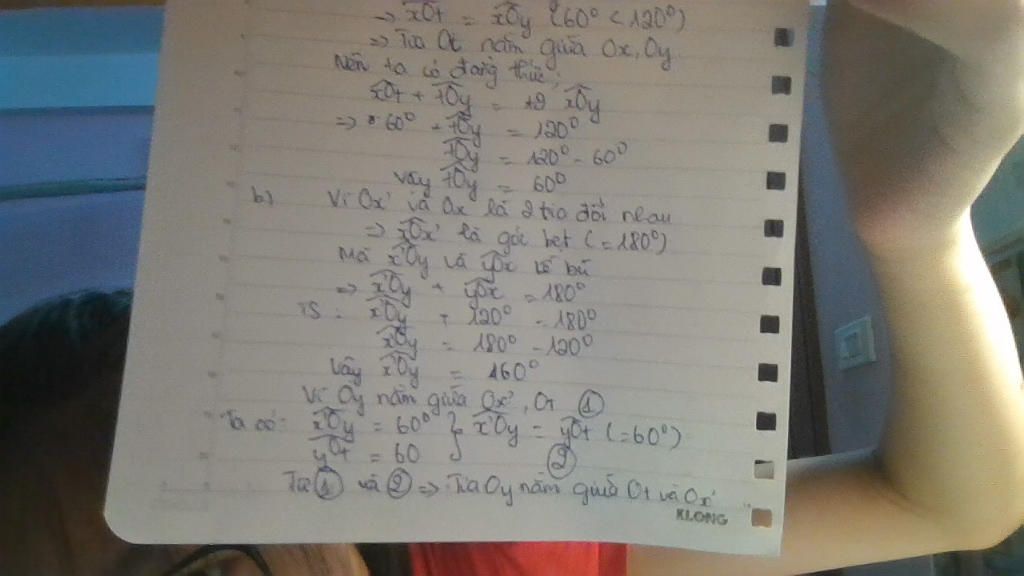 ⇒ xOt = xOy (60° < 120°)
⇒ Tia Ot nằm giữa Ox, Oy
Nên ta có đẳng thức:
xOt + tOy = xOy
⇒ 60° + tOy = 120°
tOy = 120° - 60°
Vậy tOy = 60°
b) Vì Ox' và Ox là 2 tia đối nhau
⇒ xOx' là góc bẹt (= 180°)
Mà x'Oy và yOx kề bù
⇒ x'Oy + yOx = 180°
TS: x'Oy + 120° = 180°
x'Oy = 180° - 120°
Vậy x'Oy = 160°
Vì Oy nằm giữa Ox', Ot ①
Ta có: x'Oy = 60° } x'Oy = yOt (= 60°)
yOt = 60 ②
Từ ① và ② ⇒ Tia Oy nằm giữa Ot và Ox'
KLONG